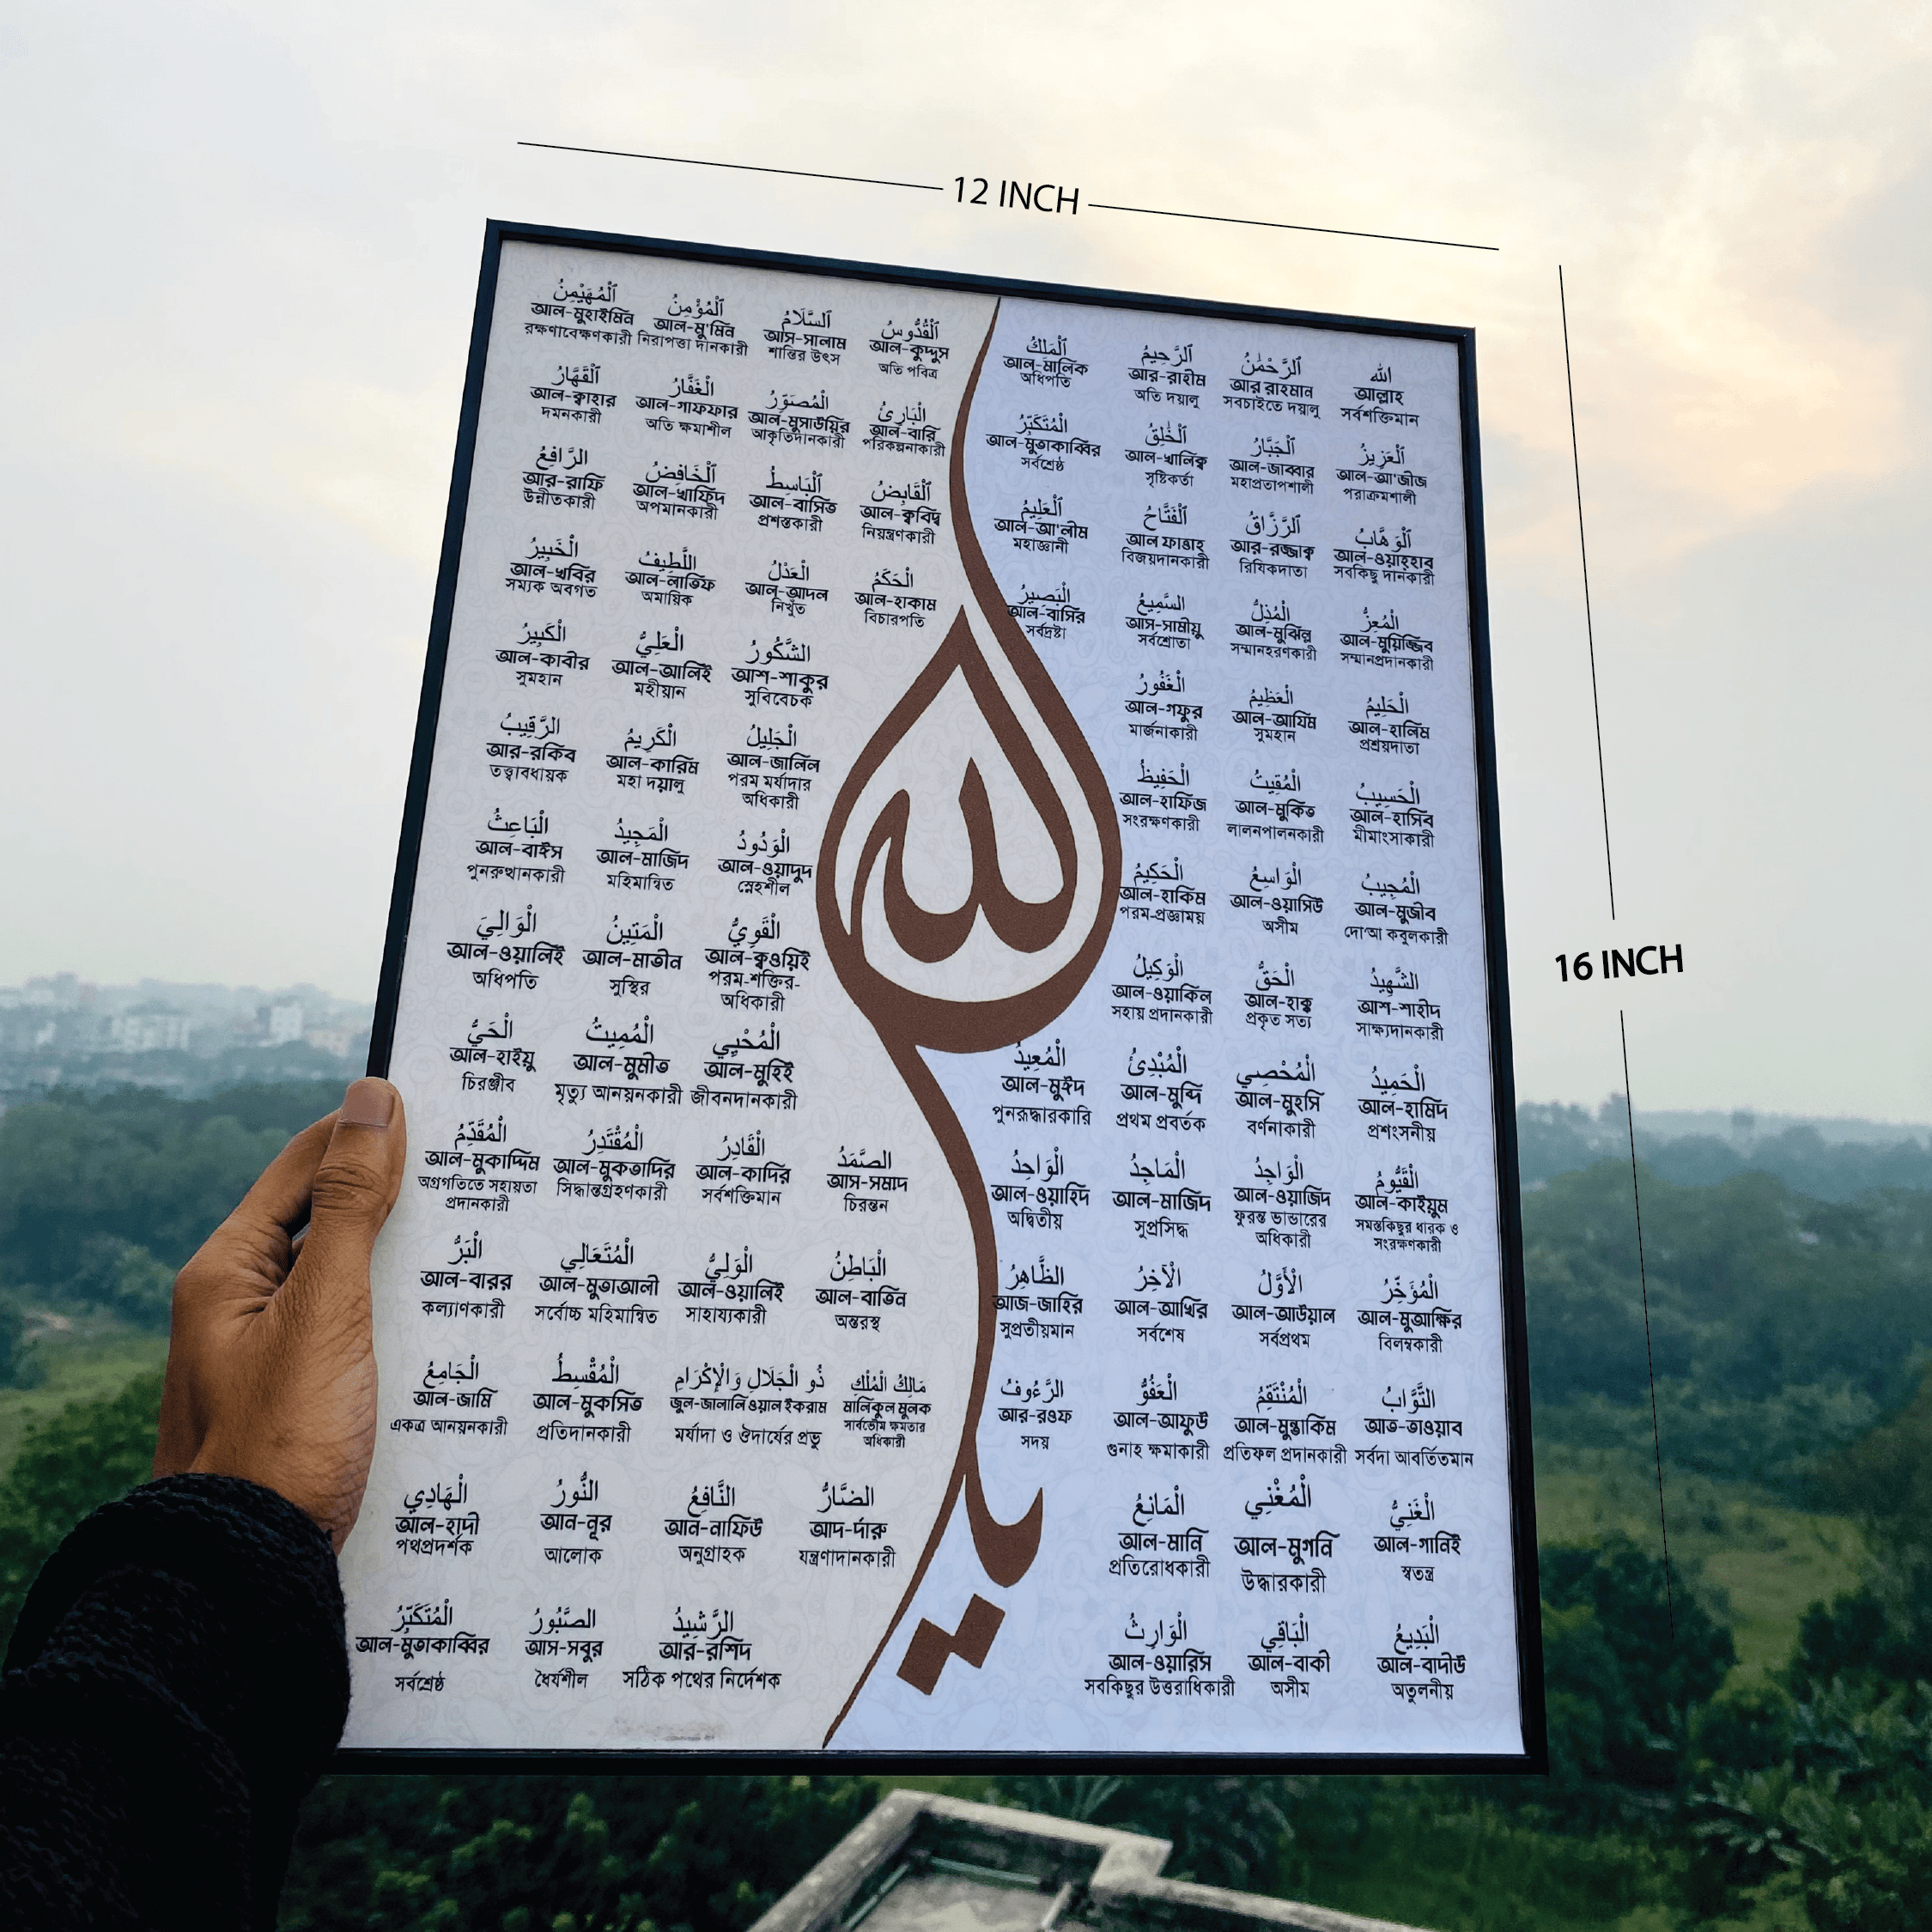 12 INCH
16 INCH
الله
আল্লাহ
সর্বশক্তিমান
ٱلرَّحْمَٰنُ
আর রাহমান
সবচাইতে দয়ালু
ٱلرَّحِيمُ
আর-রাহীম
অতি দয়ালু
ٱلْمَلِكُ
আল-মালিক
অধিপতি
ٱلْقُدُّوسُ
আল-কুদ্দুস
অতি পবিত্র
ٱلسَّلَامُ
আস-সালাম
শান্তির উৎস
ٱلْمُؤْمِنُ
আল-মু'মিন
নিরাপত্তা দানকারী
ٱلْمُهَيْمِنُ
আল-মুহাইমিন
রক্ষণাবেক্ষণকারী
ٱلْعَزِيزُ
আল-আ'জীজ
পরাক্রমশালী
ٱلْجَبَّارُ
আল-জাব্বার
মহাপ্রতাপশালী
ٱلْخَٰلِقُ
আল-খালিক্ব
সৃষ্টিকর্তা
ٱلْمُتَكَبِّرُ
আল-মুতাকাব্বির
সর্বশ্রেষ্ঠ
ٱلْبَارِئُ
আল-বারি
পরিকল্পনাকারী
ٱلْمُصَوِّرُ
আল-মুসাউয়ির
আকৃতিদানকারী
ٱلْغَفَّارُ
আল-গাফফার
অতি ক্ষমাশীল
ٱلْقَهَّارُ
আল-ক্বাহার
দমনকারী
ٱلْوَهَّابُ
আল-ওয়াহ্হাব
সবকিছু দানকারী
ٱلرَّزَّاقُ
আর-রজ্জাক্ব
রিযিকদাতা
ٱلْفَتَّاحُ
আল ফাত্তাহ
বিজয়দানকারী
ٱلْعَلِيمُ
আল-আ'লীম
মহাজ্ঞানী
ٱلْقَابِضُ
আল-ক্ববিদ্ব
নিয়ন্ত্রণকারী
ٱلْبَاسِطُ
আল-বাসিত
প্রশস্তকারী
ٱلْخَافِضُ
আল-খাফিদ
অপমানকারী
الرَّافِعُ
আর-রাফি
উন্নীতকারী
ٱلْمُعِزُّ
আল-মুয়িজ্জিব
সম্মানপ্রদানকারী
ٱلْمُذِلُّ
আল-মুঝিল্ল
সম্মানহরণকারী
السَّمِيعُ
আস-সামীয়ু
সর্বশ্রোতা
الْبَصِيرُ
আল-বাসির
সর্বদ্রষ্টা
الْحَكَمُ
আল-হাকাম
বিচারপতি
الْعَدْلُ
আল-আদল
নিখুঁত
اللَّطِيفُ
আল-লাতিফ
অমায়িক
الْخَبِيرُ
আল-খবির
সম্যক অবগত
الْحَلِيمُ
আল-হালিম
প্রশ্রয়দাতা
الْعَظِيمُ
আল-আযিম
সুমহান
الْغَفُورُ
আল-গফুর
মার্জনাকারী
الشَّكُورُ
আশ-শাকুর
সুবিবেচক
الْعَلِيُّ
আল-আলিই
মহীয়ান
الْكَبِيرُ
আল-কাবীর
সুমহান
الْحَسِيبُ
আল-হাসিব
মীমাংসাকারী
الْمُقِيتُ
আল-মুকিত
লালনপালনকারী
الْحَفِيظُ
আল-হাফিজ
সংরক্ষণকারী
الْجَلِيلُ
আল-জালিল
পরম মর্যাদার
অধিকারী
الْكَرِيمُ
আল-কারিম
মহা দয়ালু
الرَّقِيبُ
আর-রকিব
তত্ত্বাবধায়ক
الْمُجِيبُ
আল-মুজীব
দো'আ কবুলকারী
الْوَاسِعُ
আল-ওয়াসিউ
অসীম
الْحَكِيمُ
আল-হাকিম
পরম-প্রজ্ঞাময়
الْوَدُودُ
আল-ওয়াদুদ
স্নেহশীল
الْمَجِيدُ
আল-মাজিদ
মহিমান্বিত
الْبَاعِثُ
আল-বাঈস
পুনরুত্থানকারী
الشَّهِيدُ
আশ-শাহীদ
সাক্ষ্যদানকারী
الْحَقُّ
আল-হাক্ব
প্রকৃত সত্য
الْوَكِيلُ
আল-ওয়াকিল
সহায় প্রদানকারী
الْقَوِيُّ
আল-ক্বওয়িই
পরম-শক্তির-
অধিকারী
الْمَتِينُ
আল-মাতীন
সুস্থির
الْوَالِيَ
আল-ওয়ালিই
অধিপতি
الْحَمِيدُ
আল-হামিদ
প্রশংসনীয়
الْمُحْصِي
আল-মুহসি
বর্ণনাকারী
الْمُبْدِئُ
আল-মুব্দি
প্রথম প্রবর্তক
الْمُعِيدُ
আল-মুঈদ
পুনরূদ্ধারকারি
الْمُحْيِي
আল-মুহিই
জীবনদানকারী
الْمُمِيتُ
আল-মুমীত
মৃত্যু আনয়নকারী
الْحَيُّ
আল-হাইয়ু
চিরঞ্জীব
الْقَيُّومُ
আল-কাইয়ুম
সমস্তকিছুর ধারক ও
সংরক্ষণকারী
الْوَاجِدُ
আল-ওয়াজিদ
ফুরন্ত ভান্ডারের
অধিকারী
الْمَاجِدُ
আল-মাজিদ
সুপ্রসিদ্ধ
الْوَاحِدُ
আল-ওয়াহিদ
অদ্বিতীয়
الصَّمَدُ
আস-সমাদ
চিরন্তন
الْقَادِرُ
আল-কাদির
সর্বশক্তিমান
الْمُقْتَدِرُ
আল-মুকতাদির
সিদ্ধান্তগ্রহণকারী
الْمُقَدِّمُ
আল-মুকাদ্দিম
অগ্রগতিতে সহায়তা
প্রদানকারী
الْمُؤَخِّرُ
আল-মুআক্ষির
বিলম্বকারী
الْأَوَّلُ
আল-আউয়াল
সর্বপ্রথম
الْآخِرُ
আল-আখির
সর্বশেষ
الظَّاهِرُ
আজ-জাহির
সুপ্রতীয়মান
الْبَاطِنُ
আল-বাতিন
অন্তরস্থ
الْوَلِيُّ
আল-ওয়ালিই
সাহায্যকারী
الْمُتَعَالِي
আল-মুতাআলী
সর্বোচ্চ মহিমান্বিত
الْبَرُّ
আল-বারর
কল্যাণকারী
التَّوَّابُ
আত-তাওয়াব
সর্বদা আবর্তিতমান
الْمُنْتَقِمُ
আল-মুন্তাকিম
প্রতিফল প্রদানকারী
الْعَفُوُّ
আল-আফুউ
গুনাহ ক্ষমাকারী
الرَّءُوفُ
আর-রওফ
সদয়
مَالِكُ الْمُلْكِ
মালিকুল মুলক
সার্বভৌম ক্ষমতার
অধিকারী
ذُو الْجَلَالِ وَالْإِكْرَامِ
জুল-জালালি ওয়াল ইকরাম
মর্যাদা ও ঔদার্যের প্রভু
الْمُقْسِطُ
আল-মুকসিত
প্রতিদানকারী
الْجَامِعُ
আল-জামি
একত্র আনয়নকারী
الْغَنِيُّ
আল-গানিই
স্বতন্ত্র
الْمُغْنِي
আল-মুগনি
উদ্ধারকারী
الْمَانِعُ
আল-মানি
প্রতিরোধকারী
الضَّارُّ
আদ-র্দারু
যন্ত্রণাদানকারী
النَّافِعُ
আন-নাফিউ
অনুগ্রাহক
النُّورُ
আন-নূর
আলোক
الْهَادِي
আল-হাদী
পথপ্রদর্শক
الْبَدِيعُ
আল-বাদীউ
অতুলনীয়
الْبَاقِي
আল-বাকী
অসীম
الْوَارِثُ
আল-ওয়ারিস
সবকিছুর উত্তরাধিকারী
الرَّشِيدُ
আর-রশিদ
সঠিক পথের নির্দেশক
الصَّبُورُ
আস-সবুর
ধৈর্যশীল
الْمُتَكَبِّرُ
আল-মুতাকাব্বির
সর্বশ্রেষ্ঠ
يا الله